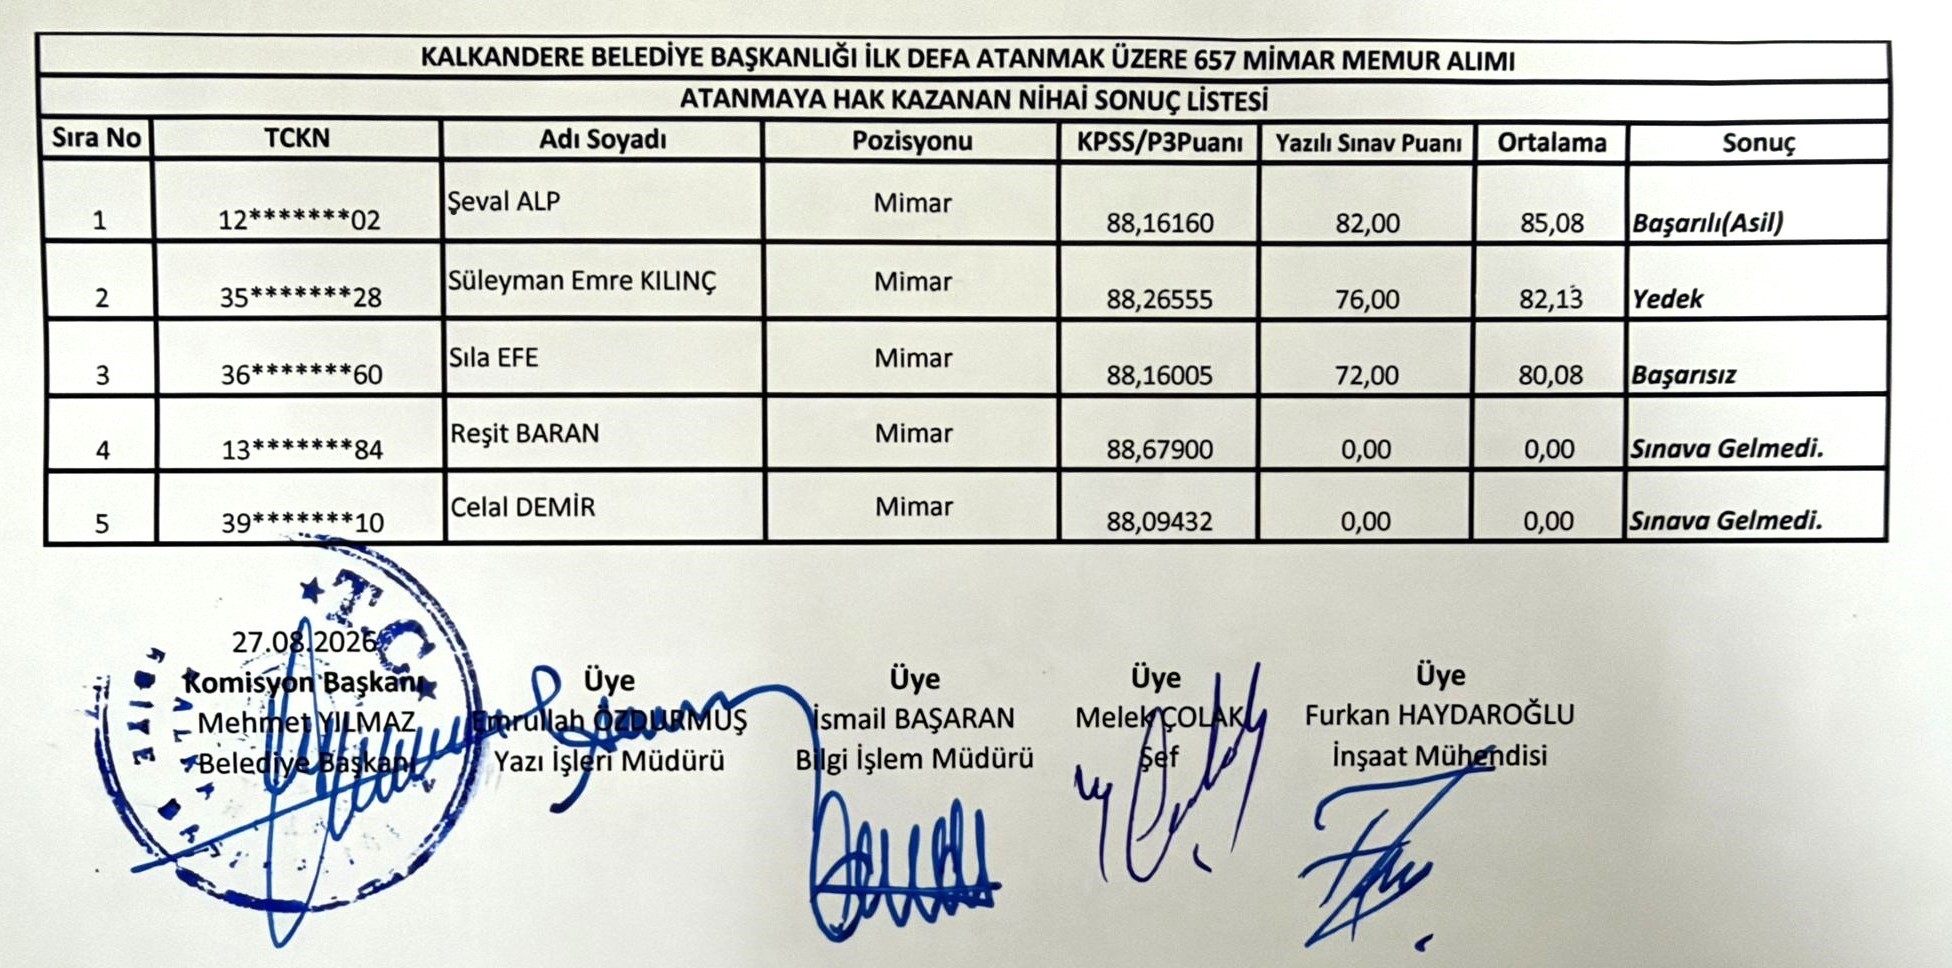 KALKANDERE BELEDİYE BAŞKANLIĞI İLK DEFA ATANMAK ÜZERE 657 MİMAR MEMUR ALIMI
ATANMAYA HAK KAZANAN NİHAİ SONUÇ LİSTESİ
Sıra No TCKN Adı Soyadı Pozisyonu KPSS/P3Puanı Yazılı Sınav Puanı Ortalama Sonuç
1 12*******02 Şeval ALP Mimar 88,16160 82,00 85,08 Başarılı(Asil)
2 35*******28 Süleyman Emre KILINÇ Mimar 88,26555 76,00 82,13 Yedek
3 36*******60 Sıla EFE Mimar 88,16005 72,00 80,08 Başarısız
4 13*******84 Reşit BARAN Mimar 88,67900 0,00 0,00 Sınava Gelmedi.
5 39*******10 Celal DEMİR Mimar 88,09432 0,00 0,00 Sınava Gelmedi.
T.C.
27.08.2026
Komisyon Başkanı Üye Üye Üye Üye
Mehmet YILMAZ Emrullah ÖZDURMUŞ İsmail BAŞARAN Melek ÇOLAK Furkan HAYDAROĞLU
Belediye Başkanı Yazı İşleri Müdürü Bilgi İşlem Müdürü Şef İnşaat Mühendisi